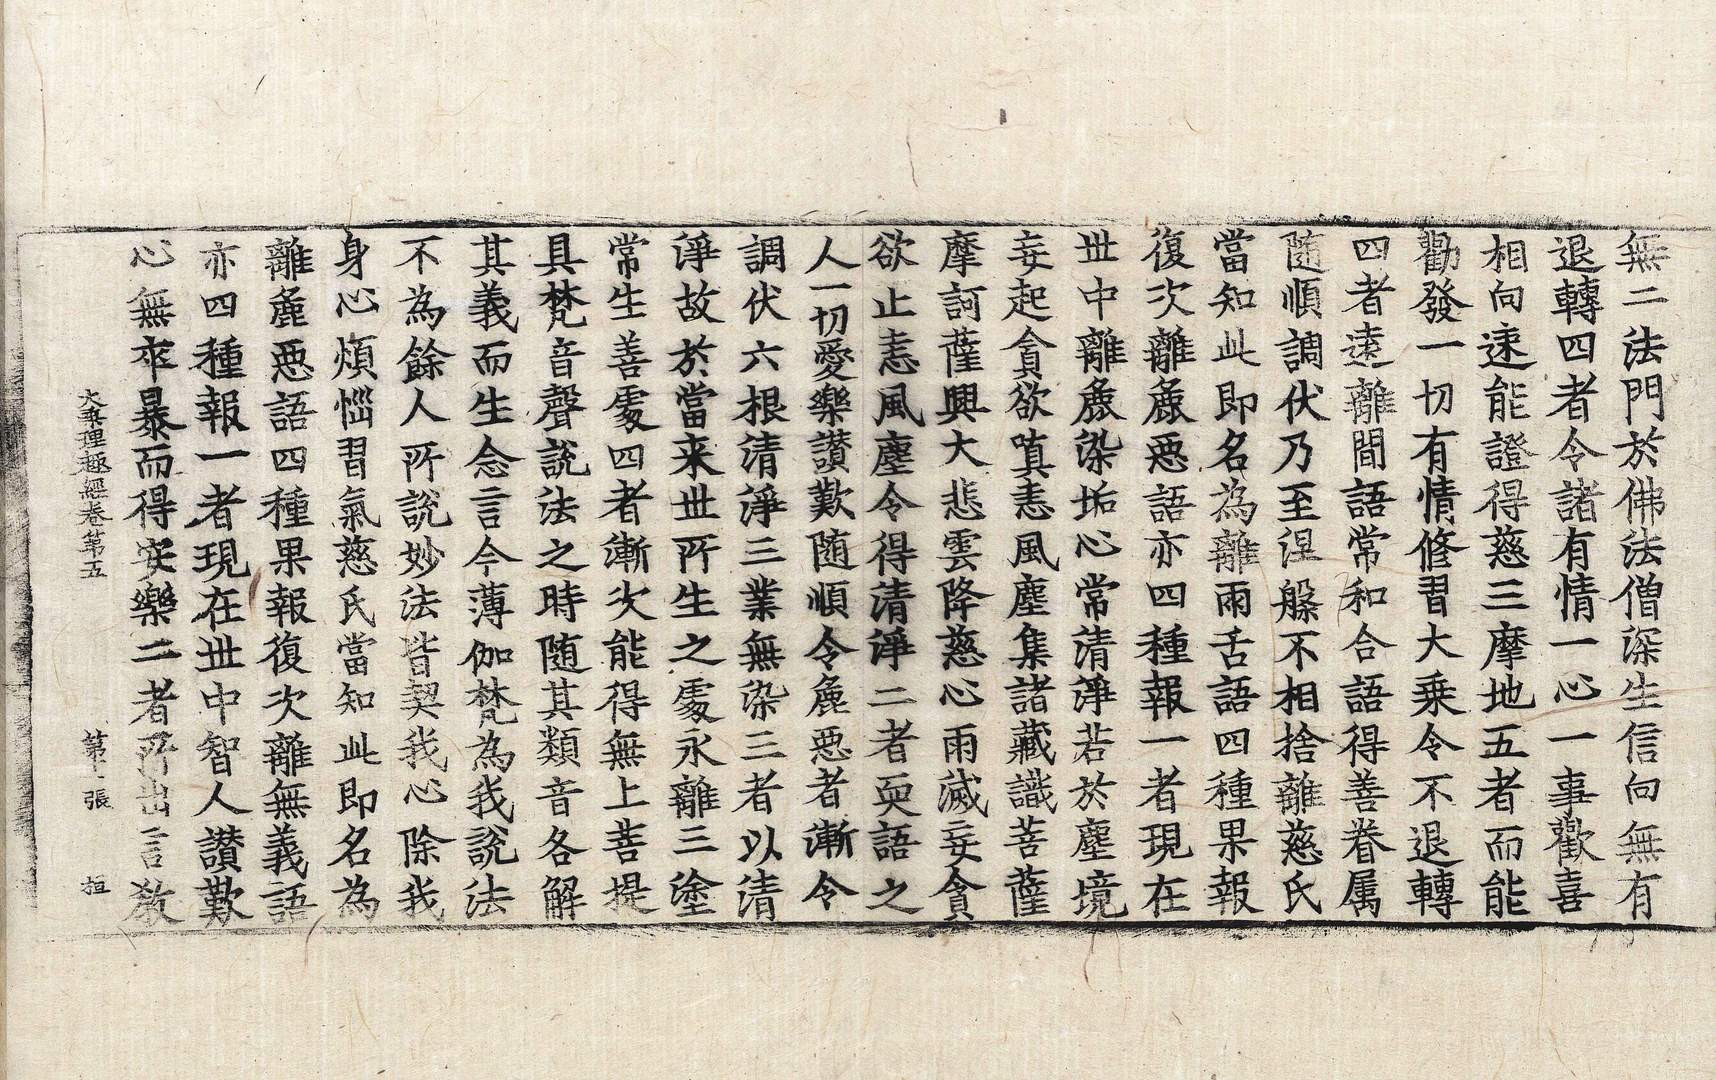 無二法門於佛法僧深生信向無有
退轉四者令諸有情一心一事歡喜
相向速能證得慈三摩地五者而能
勸發一切有情修習大乘令不退轉
四者遠離間語常和合語得善眷属
随順調伏乃至涅槃不相捨離慈氏
當知此即名為離兩舌語四種果報
復次離麁惡語亦四種報一者現在
丗中離麁染垢心常清淨若於塵境
妄起貪欲嗔恚風塵集諸藏識菩薩
摩訶薩興大悲雲降慈心雨滅妄貪
欲止恚風塵令得清淨二者耎語之
人一切愛樂讃歎随順令麁惡者漸令
調伏六根清淨三業無染三者以清
淨故於當来丗所生之處永離三塗
常生善處四者漸次能得無上菩提
具梵音聲説法之時随其類音各解
其義而生念言今薄伽梵為我説法
不為餘人所説妙法皆契我心除我
身心煩惱習氣慈氏當知此即名為
離麁惡語四種果報復次離無義語
亦四種報一者現在丗中智人讃歎
心無卒暴而得安樂二者所出言教
大乘理趣經卷第五 第 張 垣